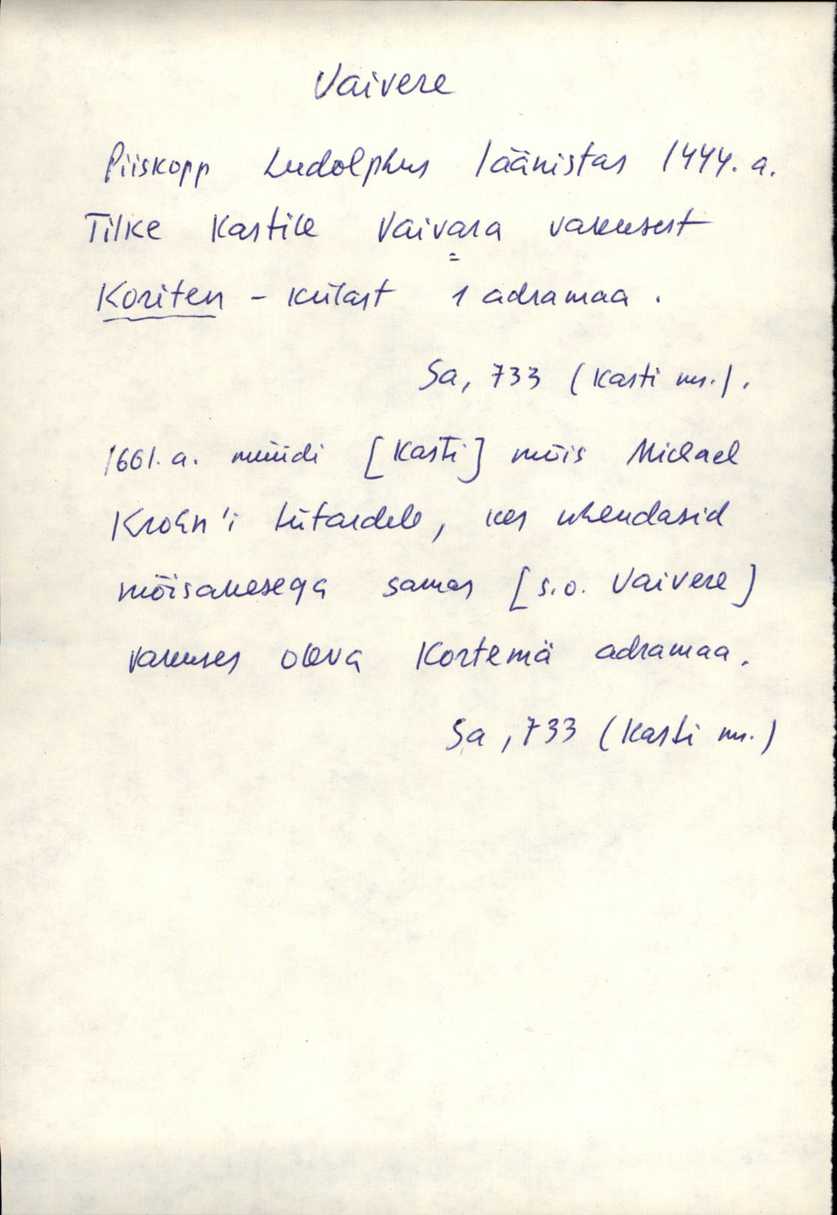 Vaivere
Piiskopp Ludolphus läänistas 1444. a.
Tilke Kastile Vaivara vakusest
Koriten - külast 1 adramaa.
Sa, 733 (Kasti mr.).
1661. a. müüdi [Kasti] mõis Michael
Krohn'i tütardele, kes ühendasid
mõisakesega samas [s.o. Vaivere]
vakuses oleva Kortemä adramaa.
Sa, 733 (Kasti mr.)